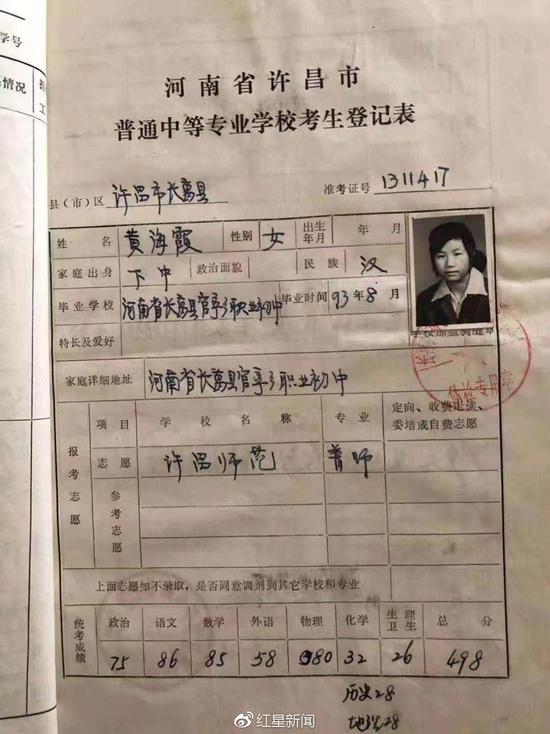 学号
情况
河南省许昌市
普通中等专业学校考生登记表
县(市)区 许昌市长葛县 准考证号 1311417
姓名 黄海霞 性别 女 出生年月 年 月
家庭出身 下中 政治面貌 民族 汉
毕业学校 河南省长葛县官亭乡职业初中 毕业时间 93年8月
特长及爱好
学校加盖骑缝章
家庭详细地址 河南省长葛县官亭乡职业初中
体检专用章
报考志愿 项目 学校名称 专业 定向、收费走读、委培或自费志愿
志愿 许昌师范 普师
参考志愿
上面志愿如不录取,是否同意调剂到其它学校和专业
统考成绩 政治 语文 数学 外语 物理 化学 生理卫生 总分
75 86 85 58 80 32 26 498
历史28
地理28
红星新闻